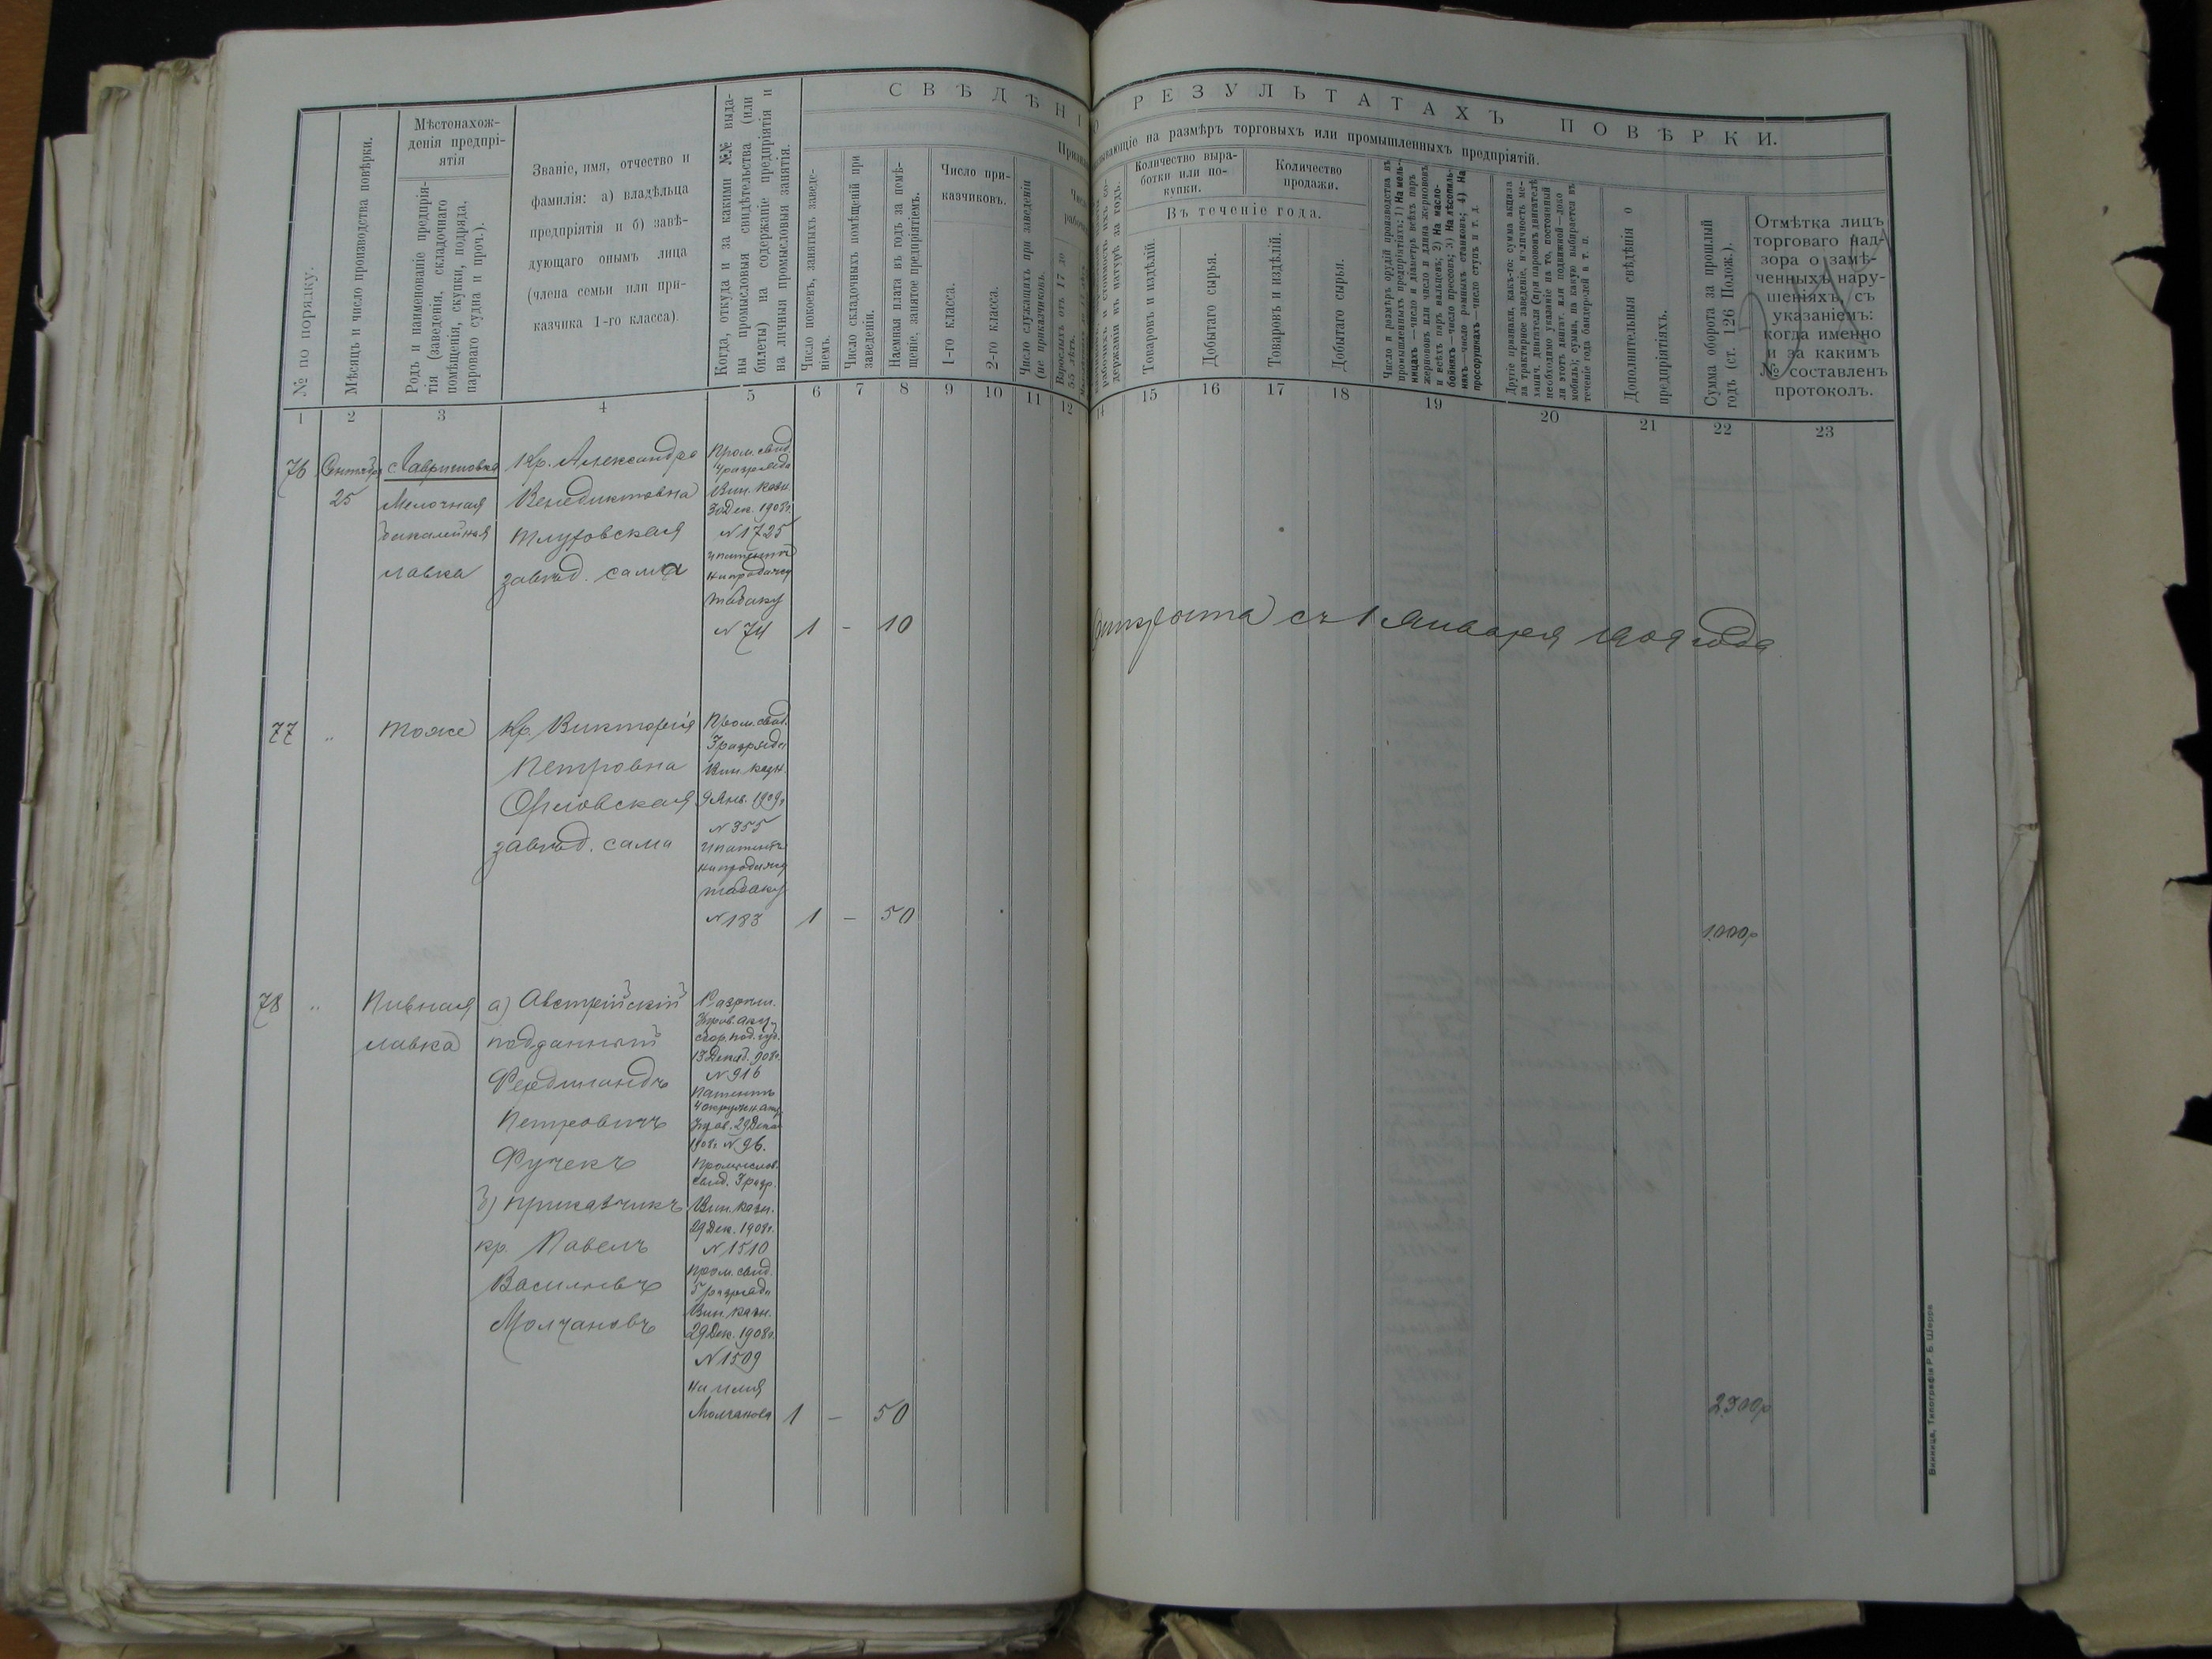 СВѢДѢНІ
О РЕЗУЛЬТАТАХЪ ПОВѢРКИ.
Призна
зывающіе на размѣръ торговыхъ или промышленныхъ предпріятій.
№ по порядку.
Мѣсяцъ и число производства повѣрки.
Мѣстонахож-
денія предпрі-
ятія
Родъ и наименованіе предпрія-
тія (заведенія, складочнаго
помѣщенія, скупки, подряда,
пароваго судна и проч.).
Званіе, имя, отчество и
фамилія: а) владѣльца
предпріятія и б) завѣ-
дующаго онымъ лица
(члена семьи или при-
казчика 1-го класса).
Когда, откуда и за какими №№ выда-
ны промысловыя свидѣтельства (или
билеты) на содержаніе предпріятія и
на личныя промысловыя занятія.
Число покоевъ, занятыхъ заведе-
ніемъ.
Число складочныхъ помѣщеній при
заведеніи.
Наемная плата въ годъ за помѣ-
щеніе, занятое предпріятіемъ.
Число при-
казчиковъ.
1-го класса.
2-го класса.
Число служащихъ при заведеніи
(не приказчиковъ).
Число
рабочи
Взрослыхъ отъ 17 до
55 лѣтъ.
рабочихъ и стоимость ихъ со-
держанія въ натурѣ за годъ.
Количество выра-
ботки или по-
купки.
Количество
продажи.
Въ теченіе года.
Товаровъ и издѣлій.
Добытаго сырья.
Товаровъ и издѣлій.
Добытаго сырья.
Число и размѣръ орудій производства въ
промышленныхъ предпріятіяхъ: 1) На мель-
ницахъ—число и діаметръ всѣхъ паръ
жернововъ или число и длина жернововъ
и всѣхъ паръ вальцевъ; 2) На масло-
бойняхъ—число прессовъ; 3) На лѣсопиль-
няхъ—число рамныхъ станковъ; 4) На
просорушкахъ—число ступъ и т. д.
Другіе признаки, какъ-то: сумма акциза
за трактирное заведеніе, наличность ме-
ханич. двигателя (при паровомъ двигателѣ
необходимо указаніе на то, постоянный
ли этотъ двигат. или подвижной—локо
мобиль); сумма, на какую выбирается въ
теченіе года бандеролей и т. п.
Дополнительныя свѣдѣнія о
предпріятіяхъ.
Сумма оборота за прошлый
годъ (ст. 126 Полож.).
Отмѣтка лицъ
торговаго над-
зора о замѣ-
ченныхъ нару-
шеніяхъ, съ
указаніемъ:
когда именно
и за какимъ
№ составленъ
протоколъ.
1 2 3 4 5 6 7 8 9 10 11 12 14 15 16 17 18 19 20 21 22 23
76 Сентября 25
с. Лавриновка
Мелочная
бакалейная
лавка
Кр. Александра
Венедиктовна
завѣд. сама
Пром. свид.
4 разряда
Вин. Казн.
30 Дек. 1908г.
N 1725
и патентъ
на продажу
табаку
N 74
1 - 10
открыта съ 1 Января 1909 года
77 „
тоже
Кр. Викторія
Петровна
Орловская
завѣд. сама
Пром. свид.
3 разряда
Вин. казн.
9 Янв. 1909г.
N 355
и патентъ
на продажу
табаку
N 183
1 - 50
1000р
78 „
Пивная
лавка
а) Австрійскій
подданный
Фердинандъ
Петровичъ
Фучекъ
б) приказчикъ
кр. Павелъ
Васильевъ
Молчановъ
13 Декаб. 908г.
N 916
Патентъ
4 окружн. акц.
Управ. 29 Декаб
1908г. N 96.
Промыслов.
свид. 3 разр.
Вин. Казн.
29 Дек. 1908г.
N 1510
Пром. свид.
5 разряда
Вин. казн.
29 Дек. 1908г.
N 1509
на имя
Молчанова
1 - 50
2300р
Винница, Типографія Р. Б. Шерра